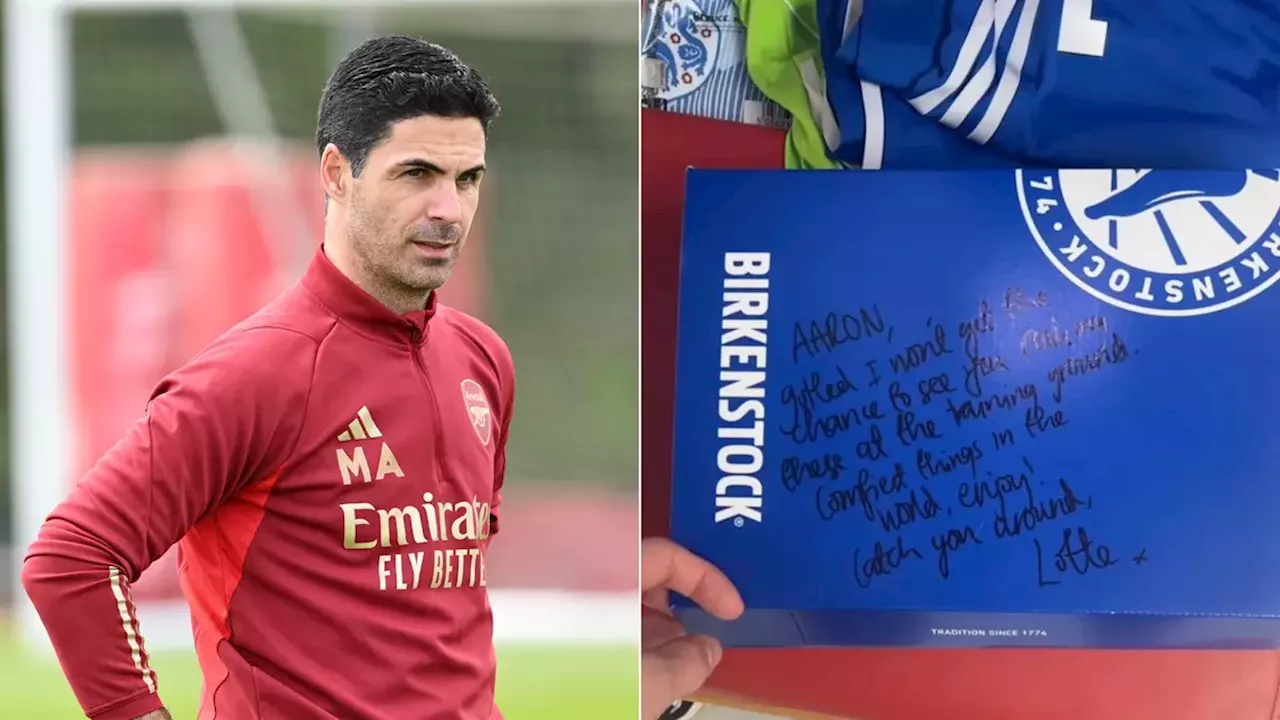 Arsenal
MA
Emirates
FLY BETTE
BIRKENSTOCK
BIRKENSTOCK
1774
AARON,
gutted I won't get the
chance to see you rock my
these at the training ground.
Comfiest things in the
world, enjoy!
Catch you around,
Lotte x
TRADITION SINCE 1774